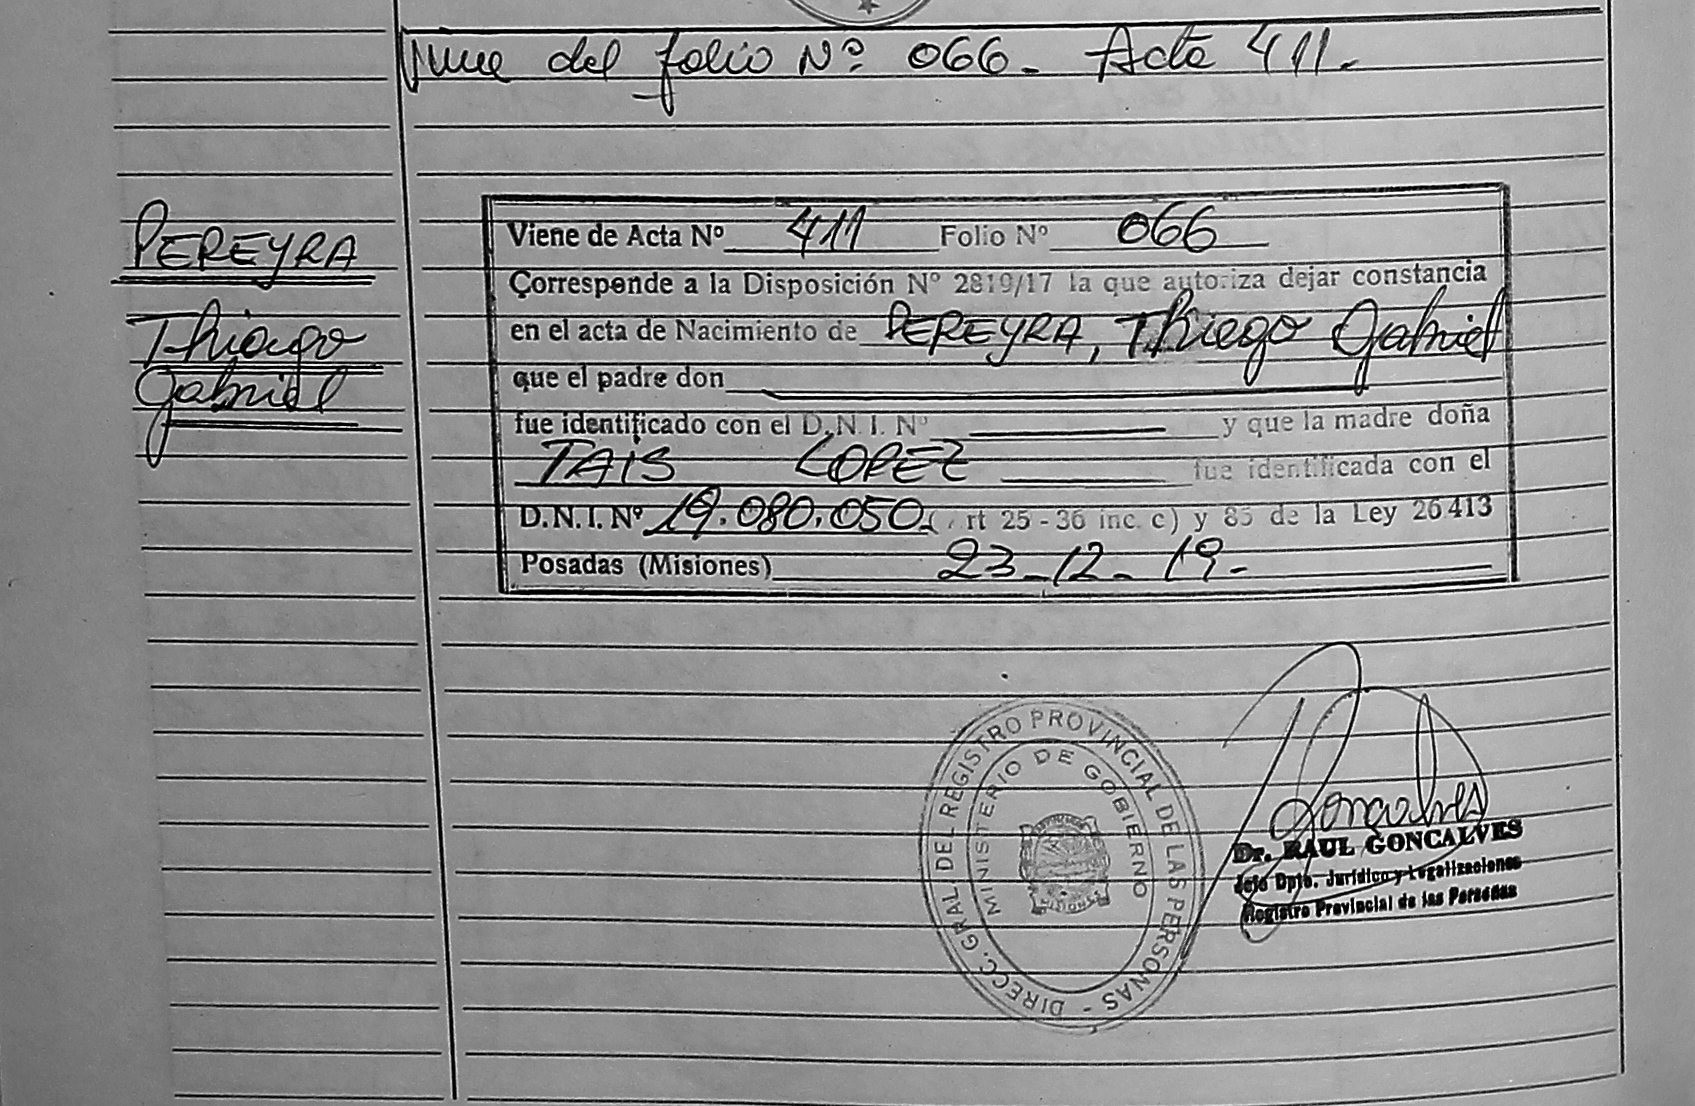 Viene del folio Nº 066. Acta 411.
PEREYRA
Thiago
Gabriel
Viene de Acta Nº 411 Folio Nº 066
Corresponde a la Disposición Nº 2819/17 la que autoriza dejar constancia
en el acta de Nacimiento de PEREYRA, Thiago Gabriel
que el padre don
fue identificado con el D.N.I. Nº y que la madre doña
TAIS LOPEZ fue identificada con el
D.N.I. Nº 19.080.050. ( rt 25 - 36 inc. c) y 85 de la Ley 26413
Posadas (Misiones) 23-12-19.
DIRECC. GRAL DEL REGISTRO PROVINCIAL DE LAS PERSONAS -
MINISTERIO DE GOBIERNO
MISIONES
Goncalves
Dr. RAUL GONCALVES
Jefe Dpto. Jurídico y Legalizaciones
Registro Provincial de las Personas